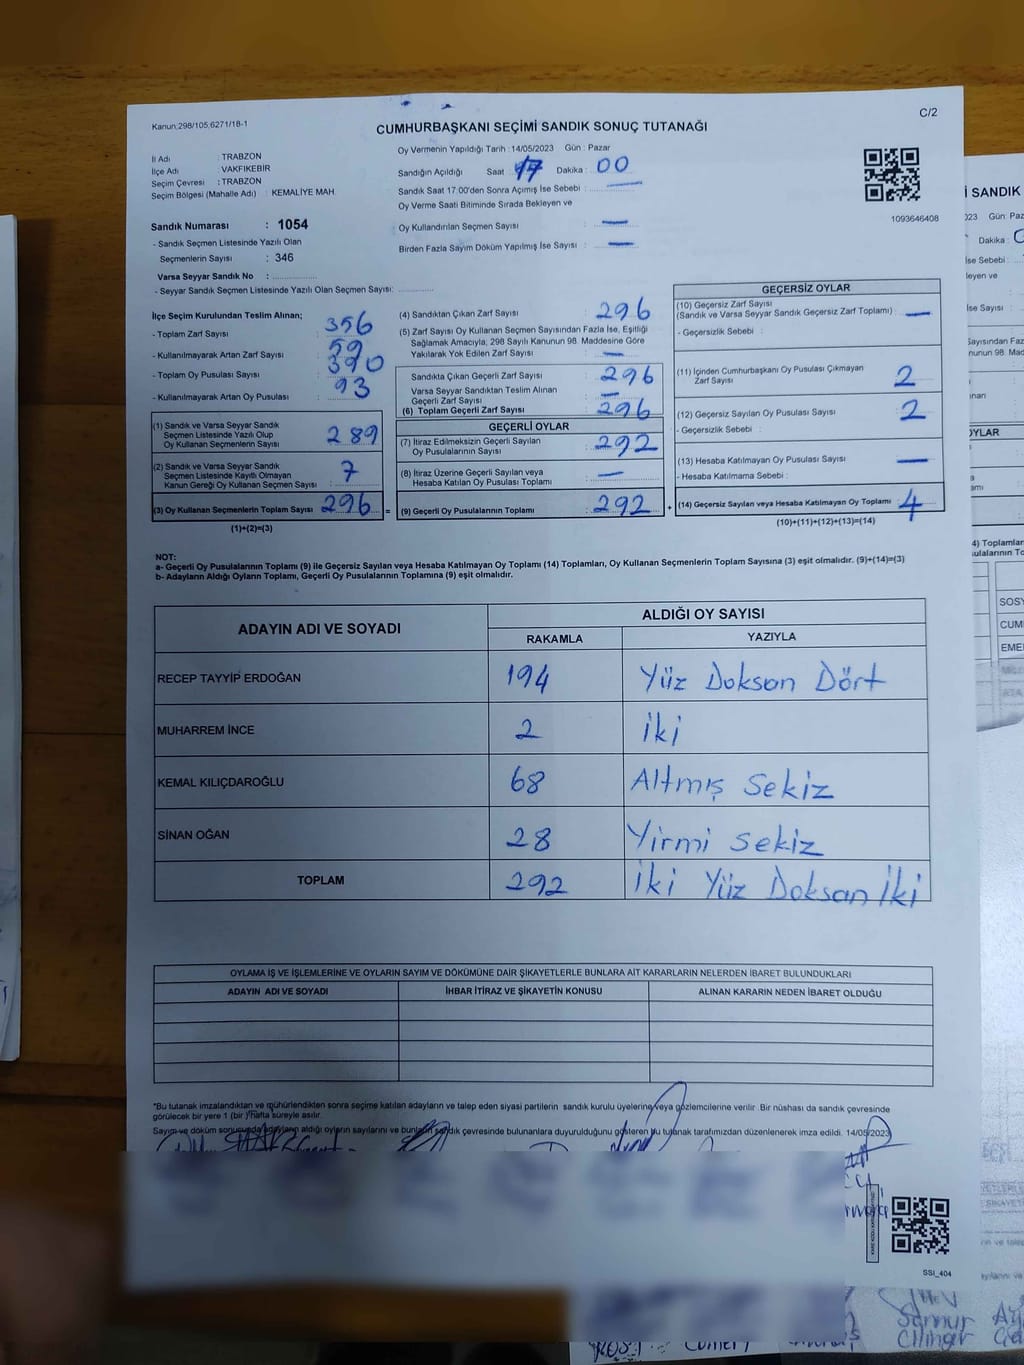 Kanun:298/105,6271/18-1
C/2
CUMHURBAŞKANI SEÇİMİ SANDIK SONUÇ TUTANAĞI
İl Adı : TRABZON
İlçe Adı : VAKFIKEBİR
Seçim Çevresi : TRABZON
Seçim Bölgesi (Mahalle Adı) : KEMALİYE MAH.
Sandık Numarası : 1054
- Sandık Seçmen Listesinde Yazılı Olan
Seçmenlerin Sayısı : 346
Varsa Seyyar Sandık No :
- Seyyar Sandık Seçmen Listesinde Yazılı Olan Seçmen Sayısı:
Oy Vermenin Yapıldığı Tarih :14/05/2023 Gün : Pazar
Sandığın Açıldığı Saat : 17 Dakika : 00
Sandık Saat 17:00'den Sonra Açımış İse Sebebi : —
Oy Verme Saati Bitiminde Sırada Bekleyen ve
Oy Kullandırılan Seçmen Sayısı : —
Birden Fazla Sayım Döküm Yapılmış İse Sayısı : —
1093646408
İlçe Seçim Kurulundan Teslim Alınan;
- Toplam Zarf Sayısı : 356
- Kullanılmayarak Artan Zarf Sayısı : 59
- Toplam Oy Pusulası Sayısı : 390
- Kullanılmayarak Artan Oy Pusulası : 93
(1) Sandık ve Varsa Seyyar Sandık
Seçmen Listesinde Yazılı Olup
Oy Kullanan Seçmenlerin Sayısı : 289
(2) Sandık ve Varsa Seyyar Sandık
Seçmen Listesinde Kayıtlı Olmayan
Kanun Gereği Oy Kullanan Seçmen Sayısı : 7
(3) Oy Kullanan Seçmenlerin Toplam Sayısı : 296 =
(1)+(2)=(3)
(4) Sandıktan Çıkan Zarf Sayısı : 296
(5) Zarf Sayısı Oy Kullanan Seçmen Sayısından Fazla İse, Eşitliği
Sağlamak Amacıyla; 298 Sayılı Kanunun 98. Maddesine Göre
Yakılarak Yok Edilen Zarf Sayısı : —
Sandıkta Çıkan Geçerli Zarf Sayısı : 296
Varsa Seyyar Sandıktan Teslim Alınan
Geçerli Zarf Sayısı : —
(6) Toplam Geçerli Zarf Sayısı : 296
GEÇERLİ OYLAR
(7) İtiraz Edilmeksizin Geçerli Sayılan
Oy Pusulalarının Sayısı : 292
(8) İtiraz Üzerine Geçerli Sayılan veya
Hesaba Katılan Oy Pusulası Toplamı : —
(9) Geçerli Oy Pusulalarının Toplamı : 292 +
GEÇERSİZ OYLAR
(10) Geçersiz Zarf Sayısı :
(Sandık ve Varsa Seyyar Sandık Geçersiz Zarf Toplamı) —
- Geçersizlik Sebebi :
(11) İçinden Cumhurbaşkanı Oy Pusulası Çıkmayan :
Zarf Sayısı 2
(12) Geçersiz Sayılan Oy Pusulası Sayısı : 2
- Geçersizlik Sebebi :
(13) Hesaba Katılmayan Oy Pusulası Sayısı : —
- Hesaba Katılmama Sebebi :
(14) Geçersiz Sayılan veya Hesaba Katılmayan Oy Toplamı : 4
(10)+(11)+(12)+(13)=(14)
NOT:
a- Geçerli Oy Pusulalarının Toplamı (9) ile Geçersiz Sayılan veya Hesaba Katılmayan Oy Toplamı (14) Toplamları, Oy Kullanan Seçmenlerin Toplam Sayısına (3) eşit olmalıdır. (9)+(14)=(3)
b- Adayların Aldığı Oyların Toplamı, Geçerli Oy Pusulalarının Toplamına (9) eşit olmalıdır.
ADAYIN ADI VE SOYADI
ALDIĞI OY SAYISI
RAKAMLA YAZIYLA
RECEP TAYYİP ERDOĞAN 194 Yüz Doksan Dört
MUHARREM İNCE 2 İki
KEMAL KILIÇDAROĞLU 68 Altmış Sekiz
SİNAN OĞAN 28 Yirmi Sekiz
TOPLAM 292 İki Yüz Doksan İki
OYLAMA İŞ VE İŞLEMLERİNE VE OYLARIN SAYIM VE DÖKÜMÜNE DAİR ŞİKAYETLERLE BUNLARA AİT KARARLARIN NELERDEN İBARET BULUNDUKLARI
ADAYIN ADI VE SOYADI İHBAR İTİRAZ VE ŞİKAYETİN KONUSU ALINAN KARARIN NEDEN İBARET OLDUĞU
*Bu tutanak imzalandıktan ve mühürlendikten sonra seçime katılan adayların ve talep eden siyasi partilerin sandık kurulu üyelerine veya gözlemcilerine verilir. Bir nüshası da sandık çevresinde
görülecek bir yere 1 (bir) hafta süreyle asılır.
Sayım ve döküm sonucunda adayların aldığı oyların sayılarını ve bunların sandık çevresinde bulunanlara duyurulduğunu gösteren bu tutanak tarafımızdan düzenlenerek imza edildi. 14/05/2023
SSI_404
Samur
Cilinger